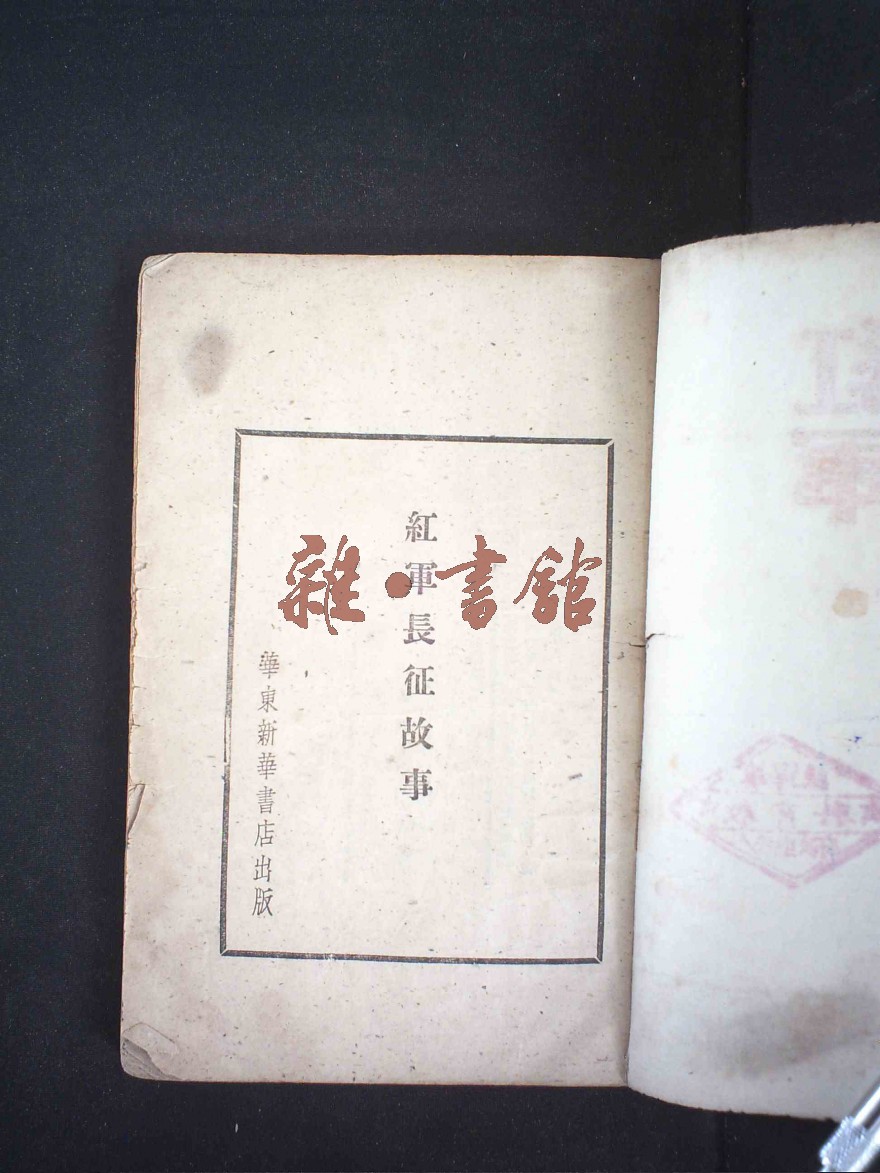 紅軍長征故事
華東新華書店出版
雜·書館